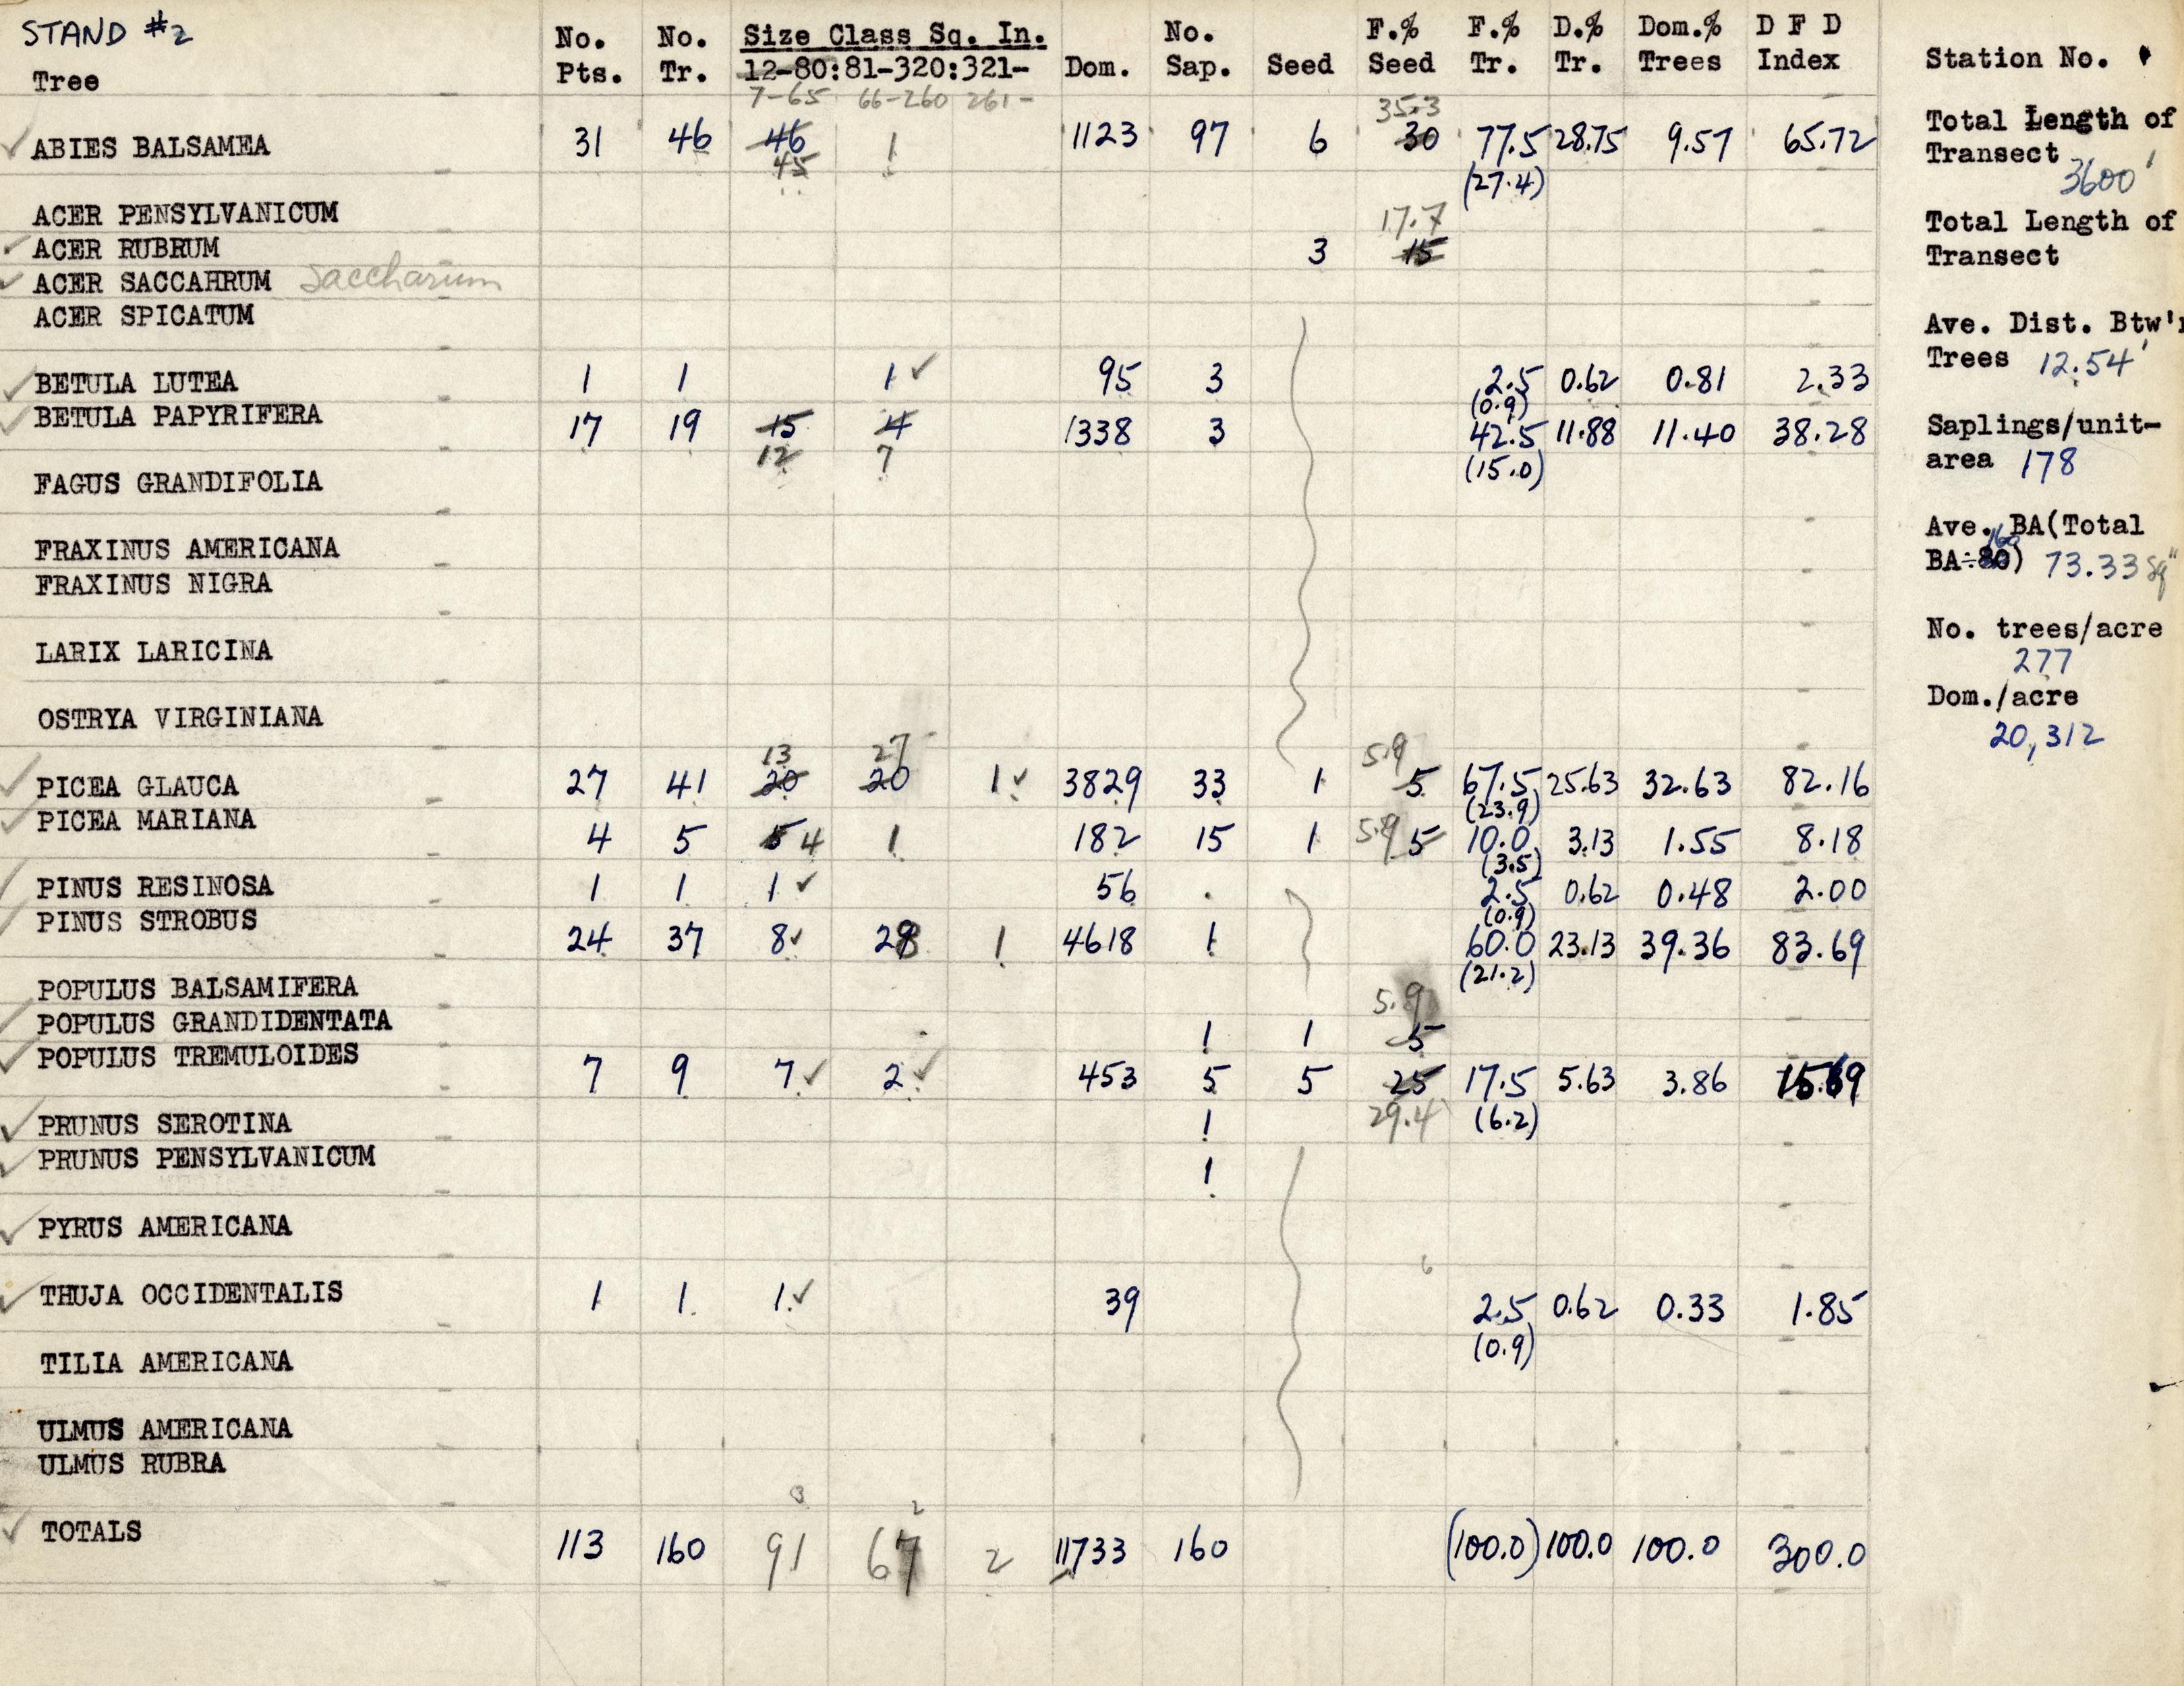 STAND #2
Tree
No. Pts.
No. Tr.
Size Class Sq. In.
12-80:81-320:321-
7-65 66-260 261-
Dom.
No. Sap.
Seed
F.% Seed
F.% Tr.
D.% Tr.
Dom.% Trees
D F D Index
35.3
ABIES BALSAMEA 31 46 46 1 1123 97 6 30 77.5 28.75 9.57 65.72
45 (27.4)
ACER PENSYLVANICUM 17.7
ACER RUBRUM 3 15
ACER SACCAHRUM Saccharium
ACER SPICATUM
BETULA LUTEA 1 1 1 ✓ 95 3 2.5 0.62 0.81 2.33
(0.9)
BETULA PAPYRIFERA 17 19 15 4 1338 3 42.5 11.88 11.40 38.28
12 7 (15.0)
FAGUS GRANDIFOLIA
FRAXINUS AMERICANA
FRAXINUS NIGRA
LARIX LARICINA
OSTRYA VIRGINIANA
13 27 5.9
PICEA GLAUCA 27 41 20 20 1 ✓ 3829 33 1 5 67.5 25.63 32.63 82.16
(23.9)
PICEA MARIANA 4 5 5 4 1 182 15 1 5.9 5 10.0 3.13 1.55 8.18
(3.5)
PINUS RESINOSA 1 1 1 ✓ 56 2.5 0.62 0.48 2.00
(0.9)
PINUS STROBUS 24 37 8 ✓ 28 1 4618 1 60.0 23.13 39.36 83.69
(21.2)
POPULUS BALSAMIFERA 5.9
POPULUS GRANDIDENTATA 1 1 5
POPULUS TREMULOIDES 7 9 7 ✓ 2 ✓ 453 5 5 25 17.5 5.63 3.86 15.69
29.4 (6.2)
PRUNUS SEROTINA 1
PRUNUS PENSYLVANICUM 1
PYRUS AMERICANA
6
THUJA OCCIDENTALIS 1 1 1 ✓ 39 2.5 0.62 0.33 1.85
(0.9)
TILIA AMERICANA
ULMUS AMERICANA
ULMUS RUBRA
3 2
TOTALS 113 160 91 67 2 11733 160 (100.0) 100.0 100.0 300.0
Station No.
Total Length of
Transect
3600'
Total Length of
Transect
Ave. Dist. Btw'n
Trees 12.54'
Saplings/unit-
area 178
Ave. BA(Total
160
BA÷80) 73.33 sq"
No. trees/acre
277
Dom./acre
20,312